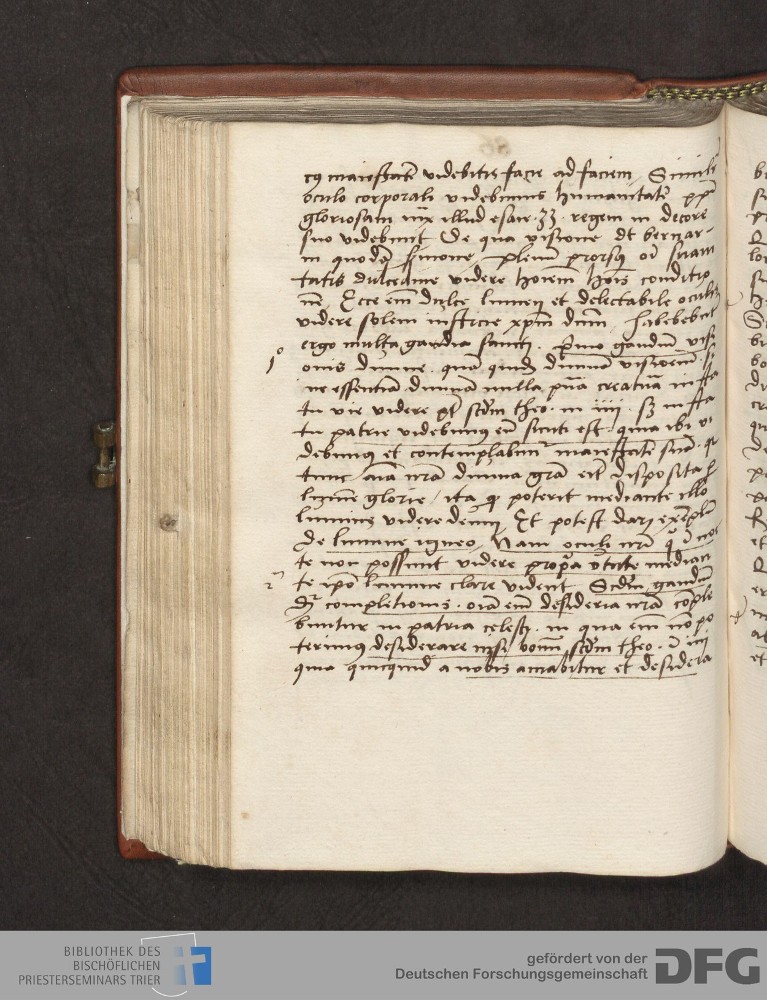 maiestatē videbitis facie ad faciem Simili
oculo corporali videbimus humanitatē xp̄i
gloriosam iux illud esaie .33. regem in decore
suo videbunt De qua visione dt bernar-
in quodā sermone plenū prorsus oī suaui
tatis dulcedine videre hoīem hoīs condito
Ecce em̄ dulce lumen et delectabile oculis
videre solem iusticie xp̄m dn̄m habebebūt
ergo multa gaudia sancti . Primo gaudiū visi
1º
onis diuine . quā quidē diuinā visionem
ne essentiā diuinā nulla pura creatura in sta
tu vie videre pt̄ scdm̄ theo . in iiii . sꝫ in sta
tu patrie videbimus eū sicuti est . quia ibi vi
debimus et contemplabimur maiestatē suā . qr
tunc aīa nr̄a diuina grā erit disposita p
lumē glorie / ita q̄ poterit mediante illo
lumine videre deum Et potest dari exemplū
De lumine igneo / Nam oculi nr̄i
te non possunt videre propria v̄tute median
2
te ipō lumine clare vident Scdm̄ gaudiū
completionis . oīa em̄ desideria nr̄a cōple
buntur in patria celesti . in qua em̄ nō po
terimus desiderare nisi bonū scdm̄ theo . ī iiii
quia quicquid a nobis amabitur et desidera
BIBLIOTHEK DES
BISCHÖFLICHEN
PRIESTERSEMINARS TRIER
gefördert von der
Deutschen Forschungsgemeinschaft
DFG